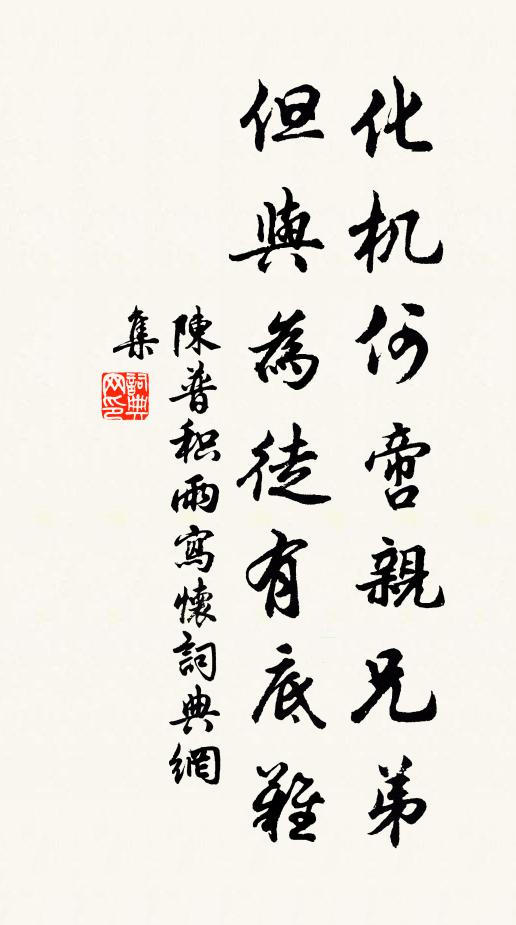 化机何啻親兄弟
但與為徒有底難
陳普积雨寫懷詞典網
集
詞典
网印